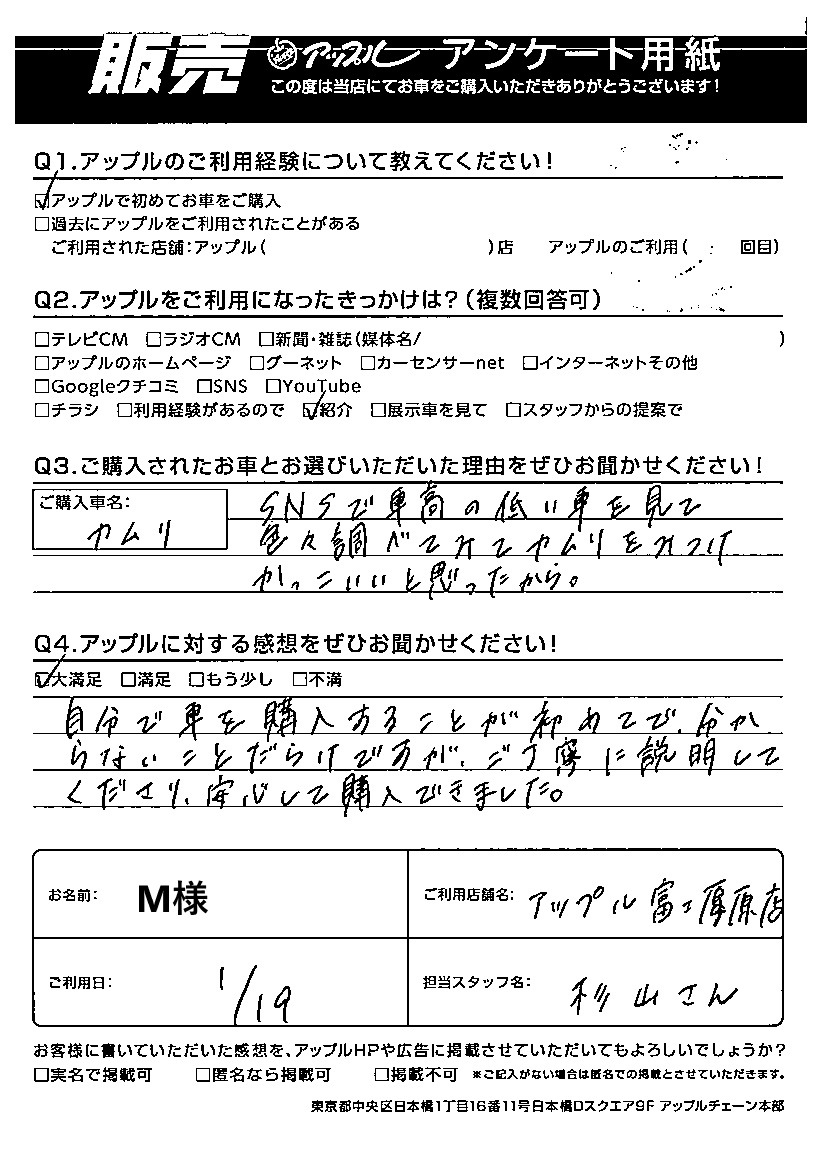 販売 アップル アンケート用紙
この度は当店にてお車をご購入いただきありがとうございます!
Q1.アップルのご利用経験について教えてください!
☑アップルで初めてお車をご購入
□過去にアップルをご利用されたことがある
ご利用された店舗:アップル( )店 アップルのご利用( 回目)
Q2.アップルをご利用になったきっかけは?(複数回答可)
□テレビCM □ラジオCM □新聞・雑誌(媒体名/ )
□アップルのホームページ □グーネット □カーセンサーnet □インターネットその他
□Googleクチコミ □SNS □YouTube
□チラシ □利用経験があるので ☑紹介 □展示車を見て □スタッフからの提案で
Q3.ご購入されたお車とお選びいただいた理由をぜひお聞かせください!
ご購入車名:
カムリ
SNSで車高の低い車を見て
色々調べてみてカムリをみつけ
かっこいいと思ったから。
Q4.アップルに対する感想をぜひお聞かせください!
☑大満足 □満足 □もう少し □不満
自分で車を購入することが初めてで、分か
らないことだらけですが、ご丁寧に説明して
くださり、安心して購入できました。
お名前: M様
ご利用店舗名: アップル富士厚原店
ご利用日: 1/19
担当スタッフ名: 杉山さん
お客様に書いていただいた感想を、アップルHPや広告に掲載させていただいてもよろしいでしょうか?
□実名で掲載可 □匿名なら掲載可 □掲載不可 ※ご記入がない場合は匿名での掲載とさせていただきます。
東京都中央区日本橋1丁目16番11号日本橋Dスクエア9F アップルチェーン本部